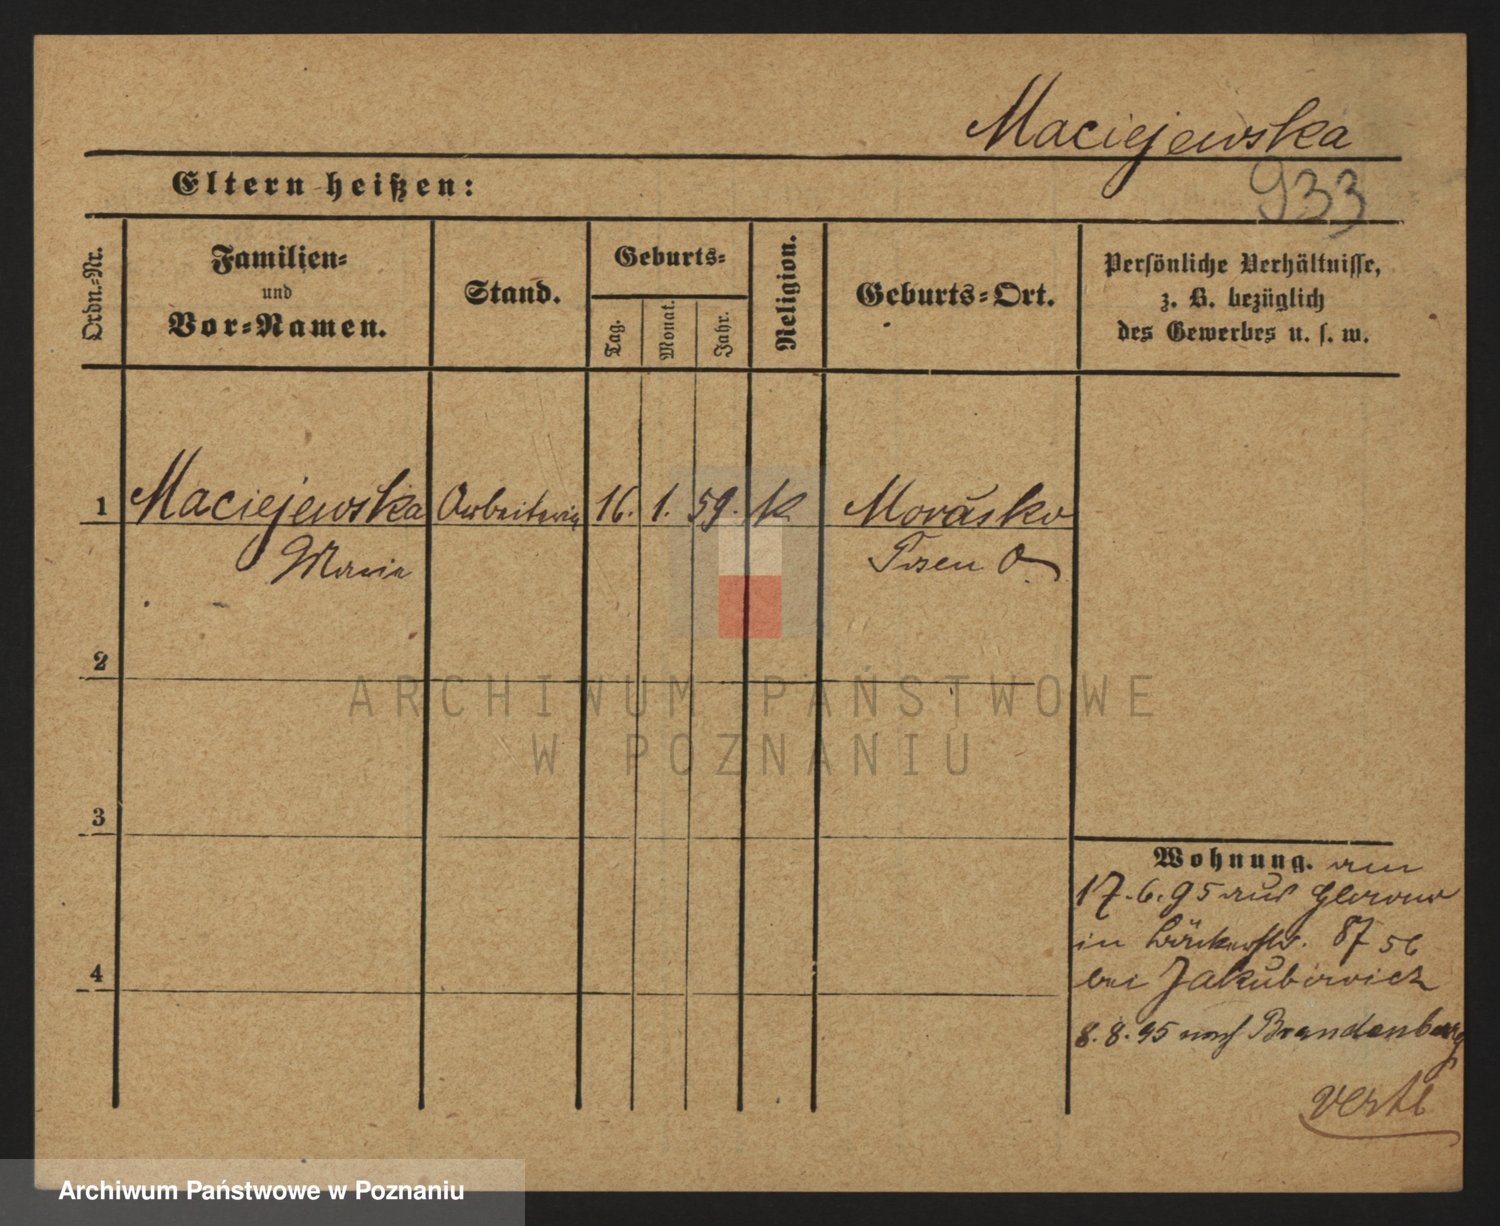 Maciejewska
933
Eltern heißen:
Ordn.-Nr.
Familien-
und
Vor-Namen.
Stand.
Geburts-
Tag.
Monat.
Jahr.
Religion.
Geburts-Ort.
Persönliche Verhältnisse,
z. B. bezüglich
des Gewerbes u. s. w.
1 Maciejewska Arbeiterin 16. 1. 59. K Morasko
Maria Posen O.
2
3
4
ARCHIWUM PAŃSTWOWE
W POZNANIU
Wohnung. am
17.6.95 aus
in 87
bei Jakubowicz
8.8.95 nach Brandenburg
Archiwum Państwowe w Poznaniu